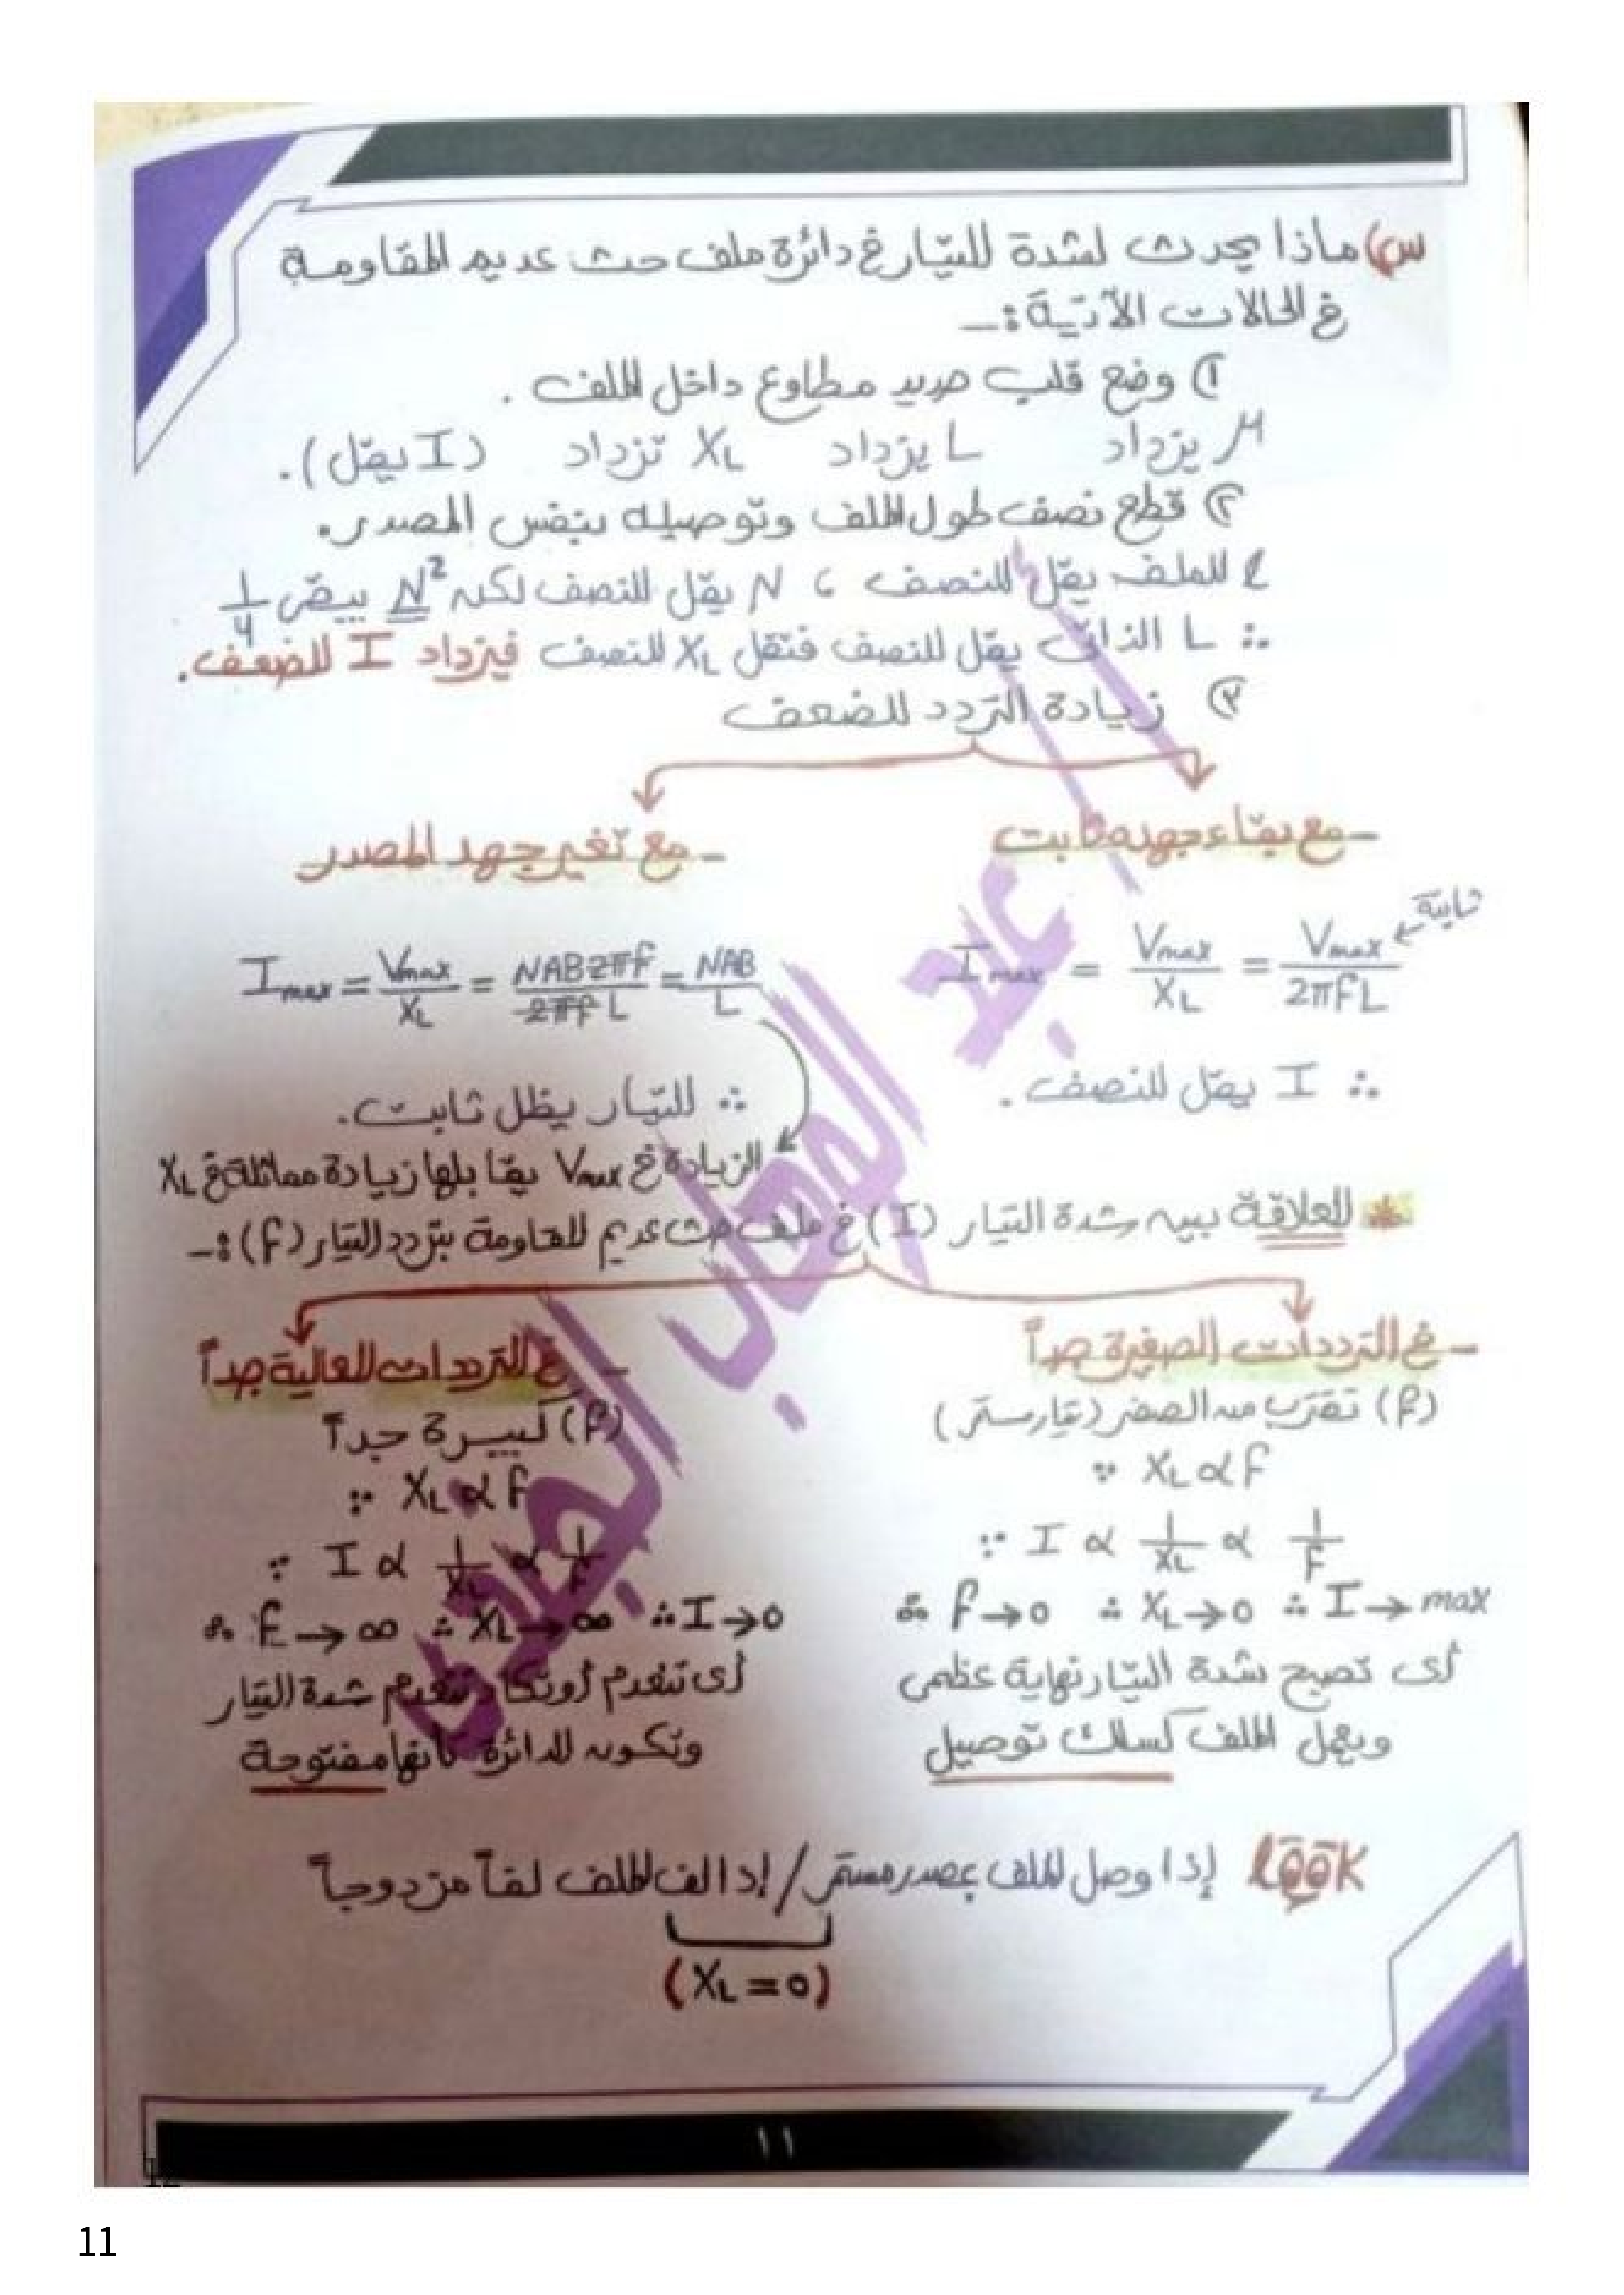 س) ماذا يحدث لشدة التيار في دائرة ملف حث عديم المقاومة
في الحالات الآتية :ـ
① وضع قلب حديد مطاوع داخل الملف .
μ يزداد L يزداد XL تزداد (I يقل).
② قطع نصف طول الملف وتوصيله بنفس المصدر.
l الملف يقل للنصف ، N يقل للنصف لكن N² يبقى 1/4
∴ L الذاتى يقل للنصف فتقل XL للنصف فيزداد I للضعف.
③ زيادة التردد للضعف
ـ مع بقاء جهده ثابت
Imax = Vmax/XL = Vmax/2πfL ثابتة
∴ I يقل للنصف .
ـ مع تغير جهد المصدر
Imax = Vmax/XL = NAB2πf/2πfL = NAB/L
∴ التيار يظل ثابت.
الزيادة في Vmax يقابلها زيادة مماثلة في XL
* العلاقة بين شدة التيار (I) في ملف حث عديم المقاومة بتردد التيار (f) :ـ
ـ في الترددات الصغيرة جداً
(f) تقترب من الصفر (تيار مستمر)
∵ XL α f
∵ I α 1/XL α 1/f
∴ f → 0 ∴ XL → 0 ∴ I → max
أى تصبح شدة التيار نهاية عظمى
ويعمل الملف كسلك توصيل
ـ في الترددات العالية جداً
(f) كبيرة جداً
∵ XL α f
∵ I α 1/XL α 1/f
∴ f → ∞ ∴ XL → ∞ ∴ I → 0
أى تنعدم أو تكاد تنعدم شدة التيار
وتكون الدائرة كأنها مفتوحة
LOOK إذا وصل الملف بمصدر مستمر / إذا لف الملف لفاً مزدوجاً
(XL = 0)
١١
12
11
أ/عبد الوهاب الجندى